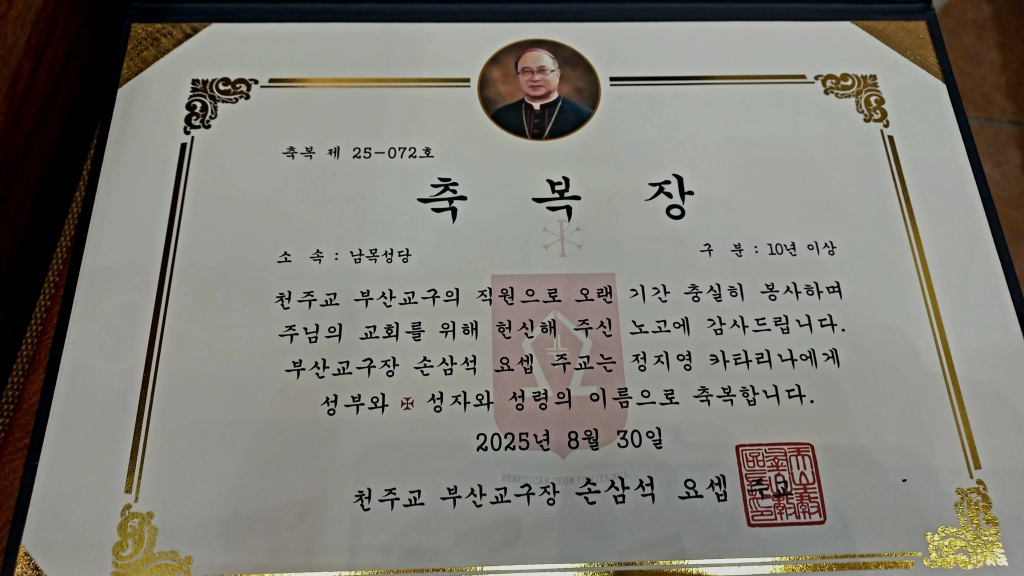 축복 제 25-072호
축 복 장
소 속 : 남목성당
구 분 : 10년 이상
천주교 부산교구의 직원으로 오랜 기간 충실히 봉사하며
주님의 교회를 위해 헌신해 주신 노고에 감사드립니다.
부산교구장 손삼석 요셉 주교는 정지영 카타리나에게
성부와 ✠ 성자와 성령의 이름으로 축복합니다.
2025년 8월 30일
BENEDICAM DEUM
천주교 부산교구장 손삼석 요셉 주교